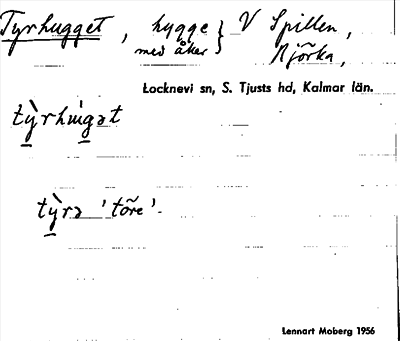 Tyrhugget, hygge med åker } V Spillen, Njörka,
Locknevi sn, S. Tjusts hd, Kalmar län.
tỳ̱rhu̱gət
tỳ̱rə 'töre'.
Lennart Moberg 1956